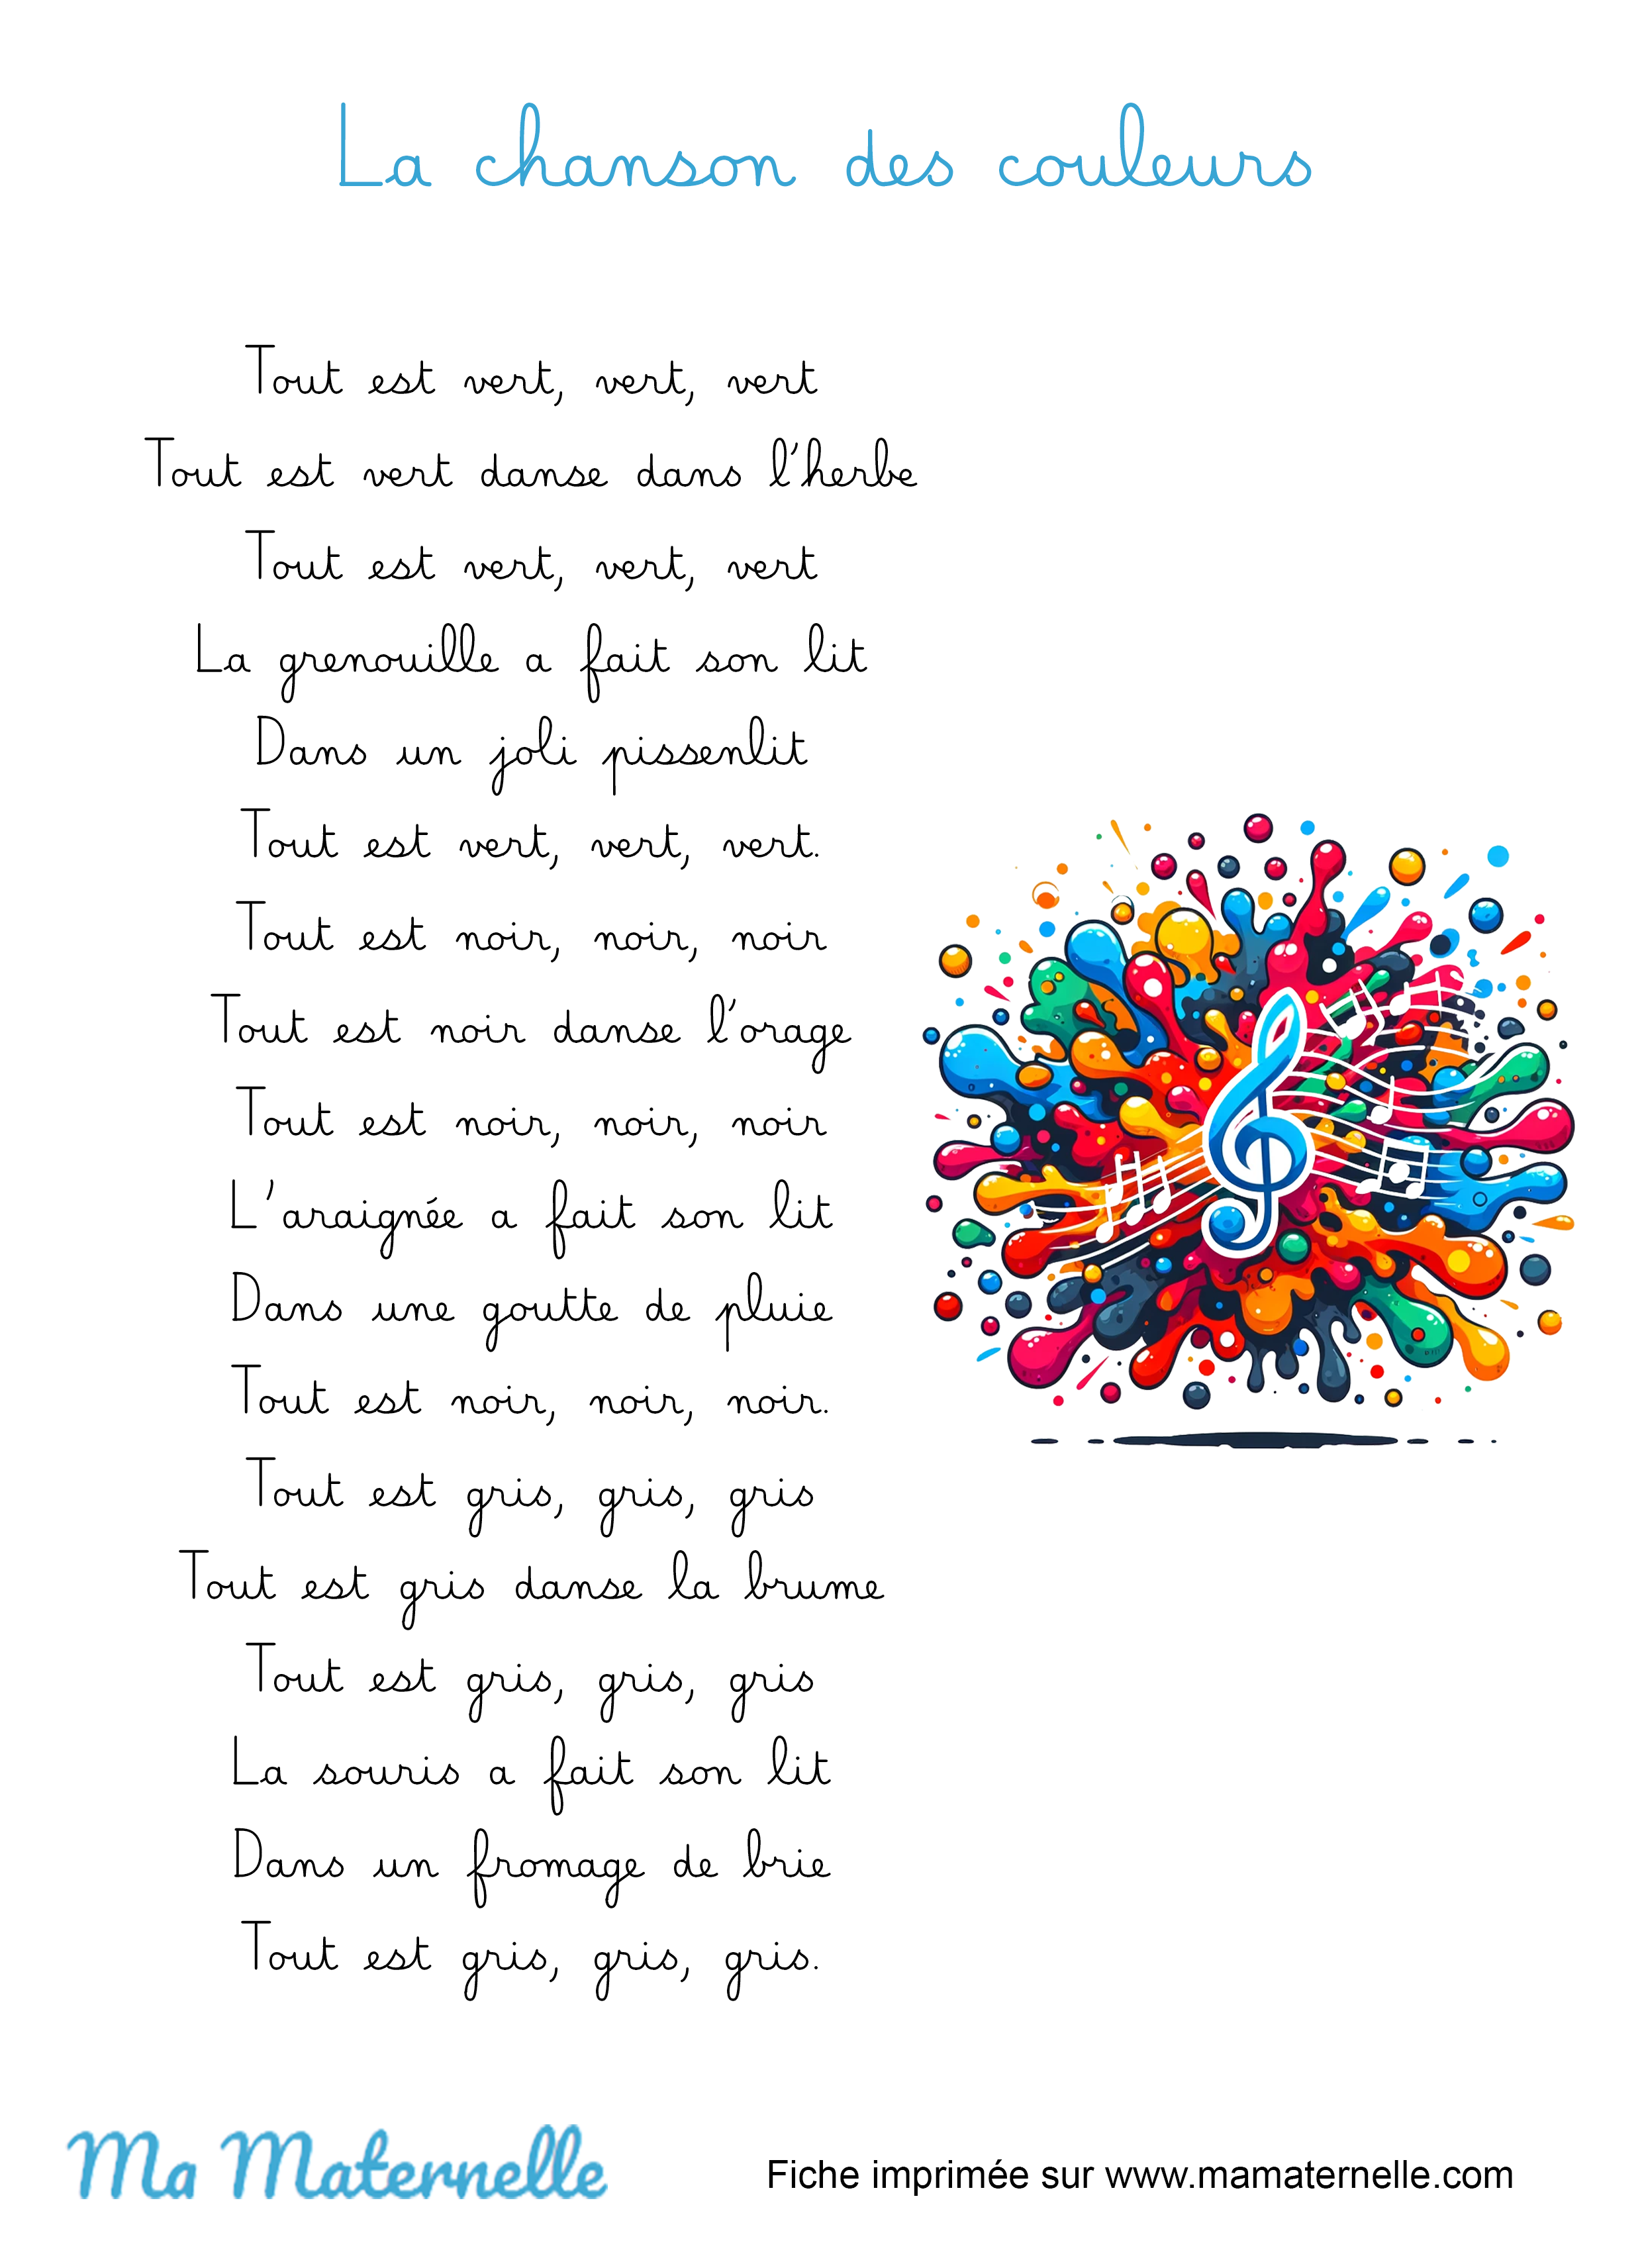 La chanson des couleurs
Tout est vert, vert, vert
Tout est vert danse dans l'herbe
Tout est vert, vert, vert
La grenouille a fait son lit
Dans un joli pissenlit
Tout est vert, vert, vert.
Tout est noir, noir, noir
Tout est noir danse l'orage
Tout est noir, noir, noir
L'araignée a fait son lit
Dans une goutte de pluie
Tout est noir, noir, noir.
Tout est gris, gris, gris
Tout est gris danse la brume
Tout est gris, gris, gris
La souris a fait son lit
Dans un fromage de brie
Tout est gris, gris, gris.
Ma Maternelle
Fiche imprimée sur www.mamaternelle.com